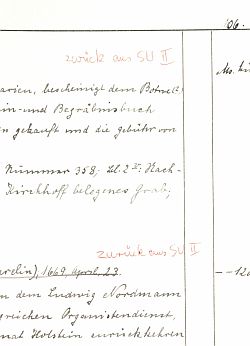 06.
zurück aus SU II
arien, bescheinigt dem
in- und Begräbnisbuch
gekauft und die gebühr von
Nummer 358,
Kirchhoff belegenes Grab;
zurück aus SU II
1669, April, 23.
dem Ludwig Nordmann
greichen Organistendienst,
nat Holstein zurückkehren